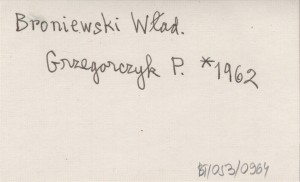 Broniewski Wład.
Grzegorczyk P. *1962
BI/053/0964